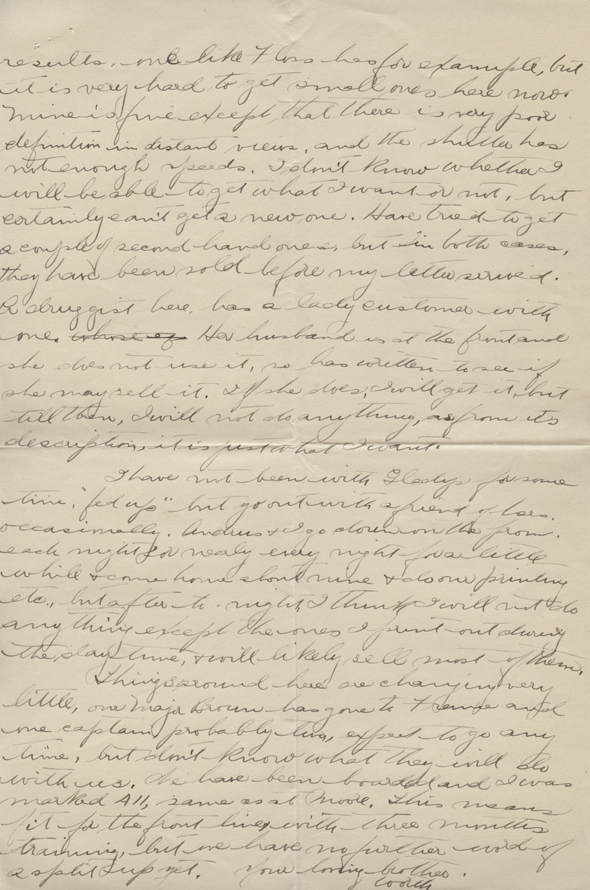 results, one like Floss has for example, but
it is very hard to get small ones here now.
Mine is fine except that there is very poor
definition in distant views, and the shutter has
not enough speeds. I don't know whether I
will be able to get what I want or not, but
certainly can't get a new one. Have tried to get
a couple of second hand ones, but in both cases,
they have been sold before my letter arrived.
A druggist here, has a lady customer with
one. whose Her husband is at the front and
she does not use it, so has written to see if
she may sell it. If she does, I will get it, but
till then, I will not do anything, as from its
description, it is just what I want.
I have not been with Gladys for some
time, "fed up" but go out with a friend of hers.
occasionally. Andrus & I go down on the prom.
each night or nearly every night for a little
while & come home about nine & do our printing
etc., but after to-night, I think I will not do
anything except the ones I print out during
the day time, & will likely sell most of them.
Things around here are changing very
little, one Major Brown has gone to France and
one captain, probably two, expect to go any
time, but don't know what they will do
with us. We have been boarded and I was
marked A11, same as at Moore. This means
fit for the front line, with three months
training, but we have no further word of
a split up yet. Your loving brother.
Worth